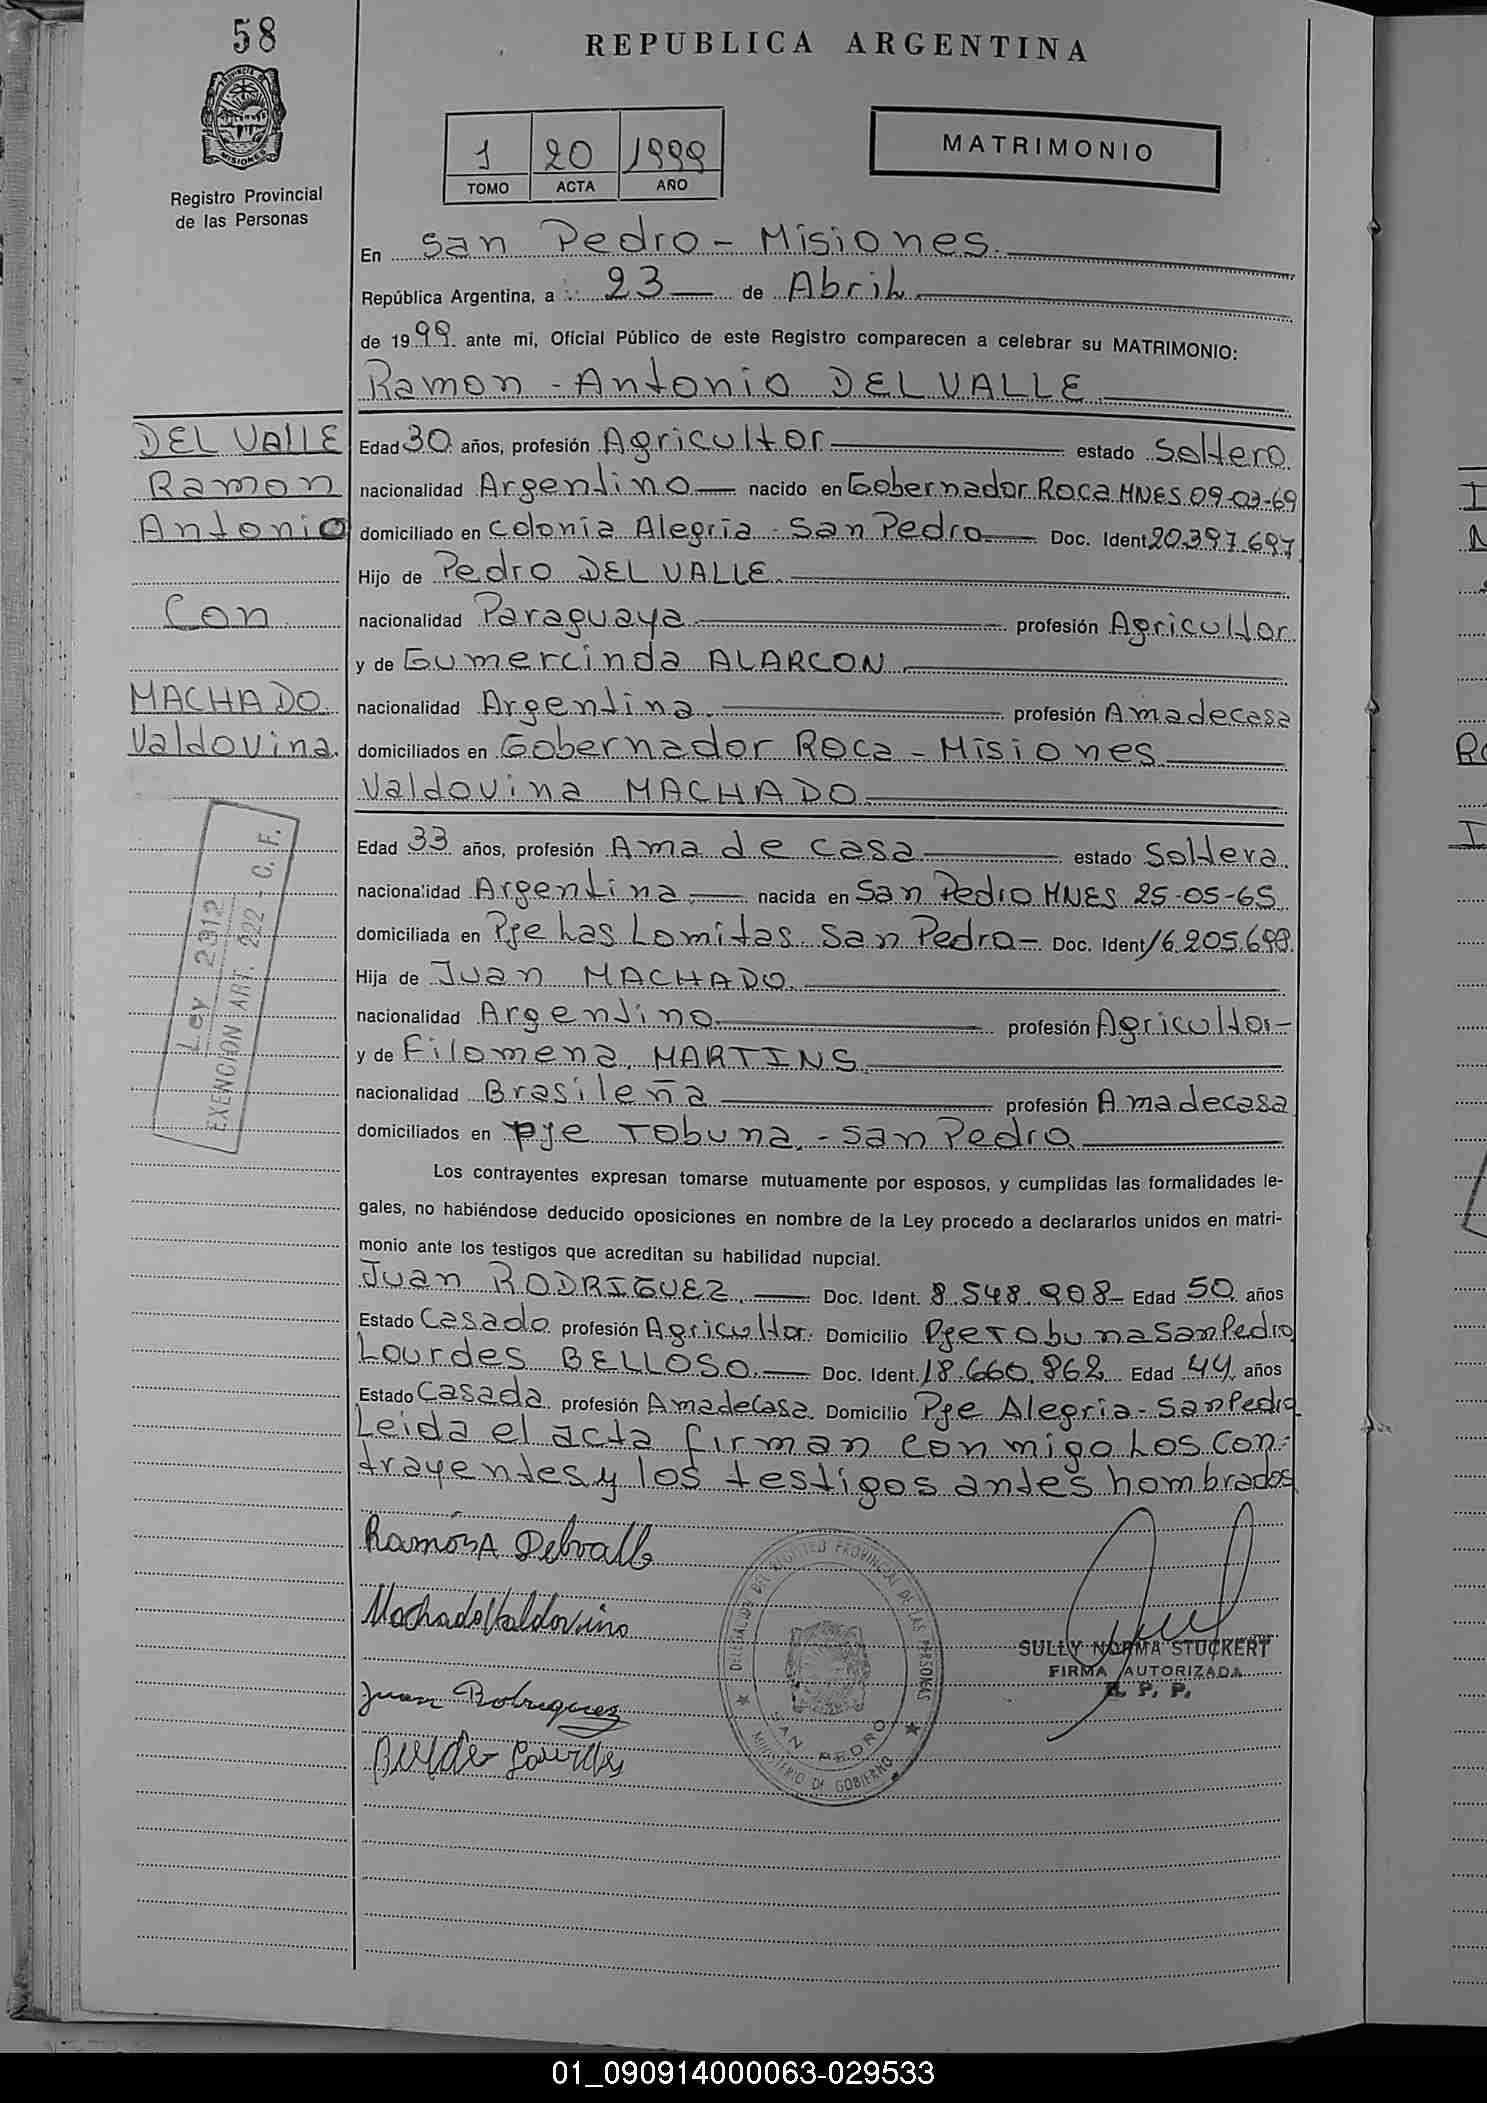 58
REPUBLICA ARGENTINA
PROVINCIA DE
MISIONES
Registro Provincial
de las Personas
1 20 1999
TOMO ACTA AÑO
MATRIMONIO
En San Pedro - Misiones.
República Argentina, a 23 de Abril
de 1999 ante mi, Oficial Público de este Registro comparecen a celebrar su MATRIMONIO:
Ramon - Antonio DEL VALLE
DEL VALLE
Ramon
Antonio
Con
MACHADO
Valdovina.
Ley 2312
EXENCION ART. 222 - C. F.
Edad 30 años, profesión Agricultor estado Soltero
nacionalidad Argentino nacido en Gobernador Roca MNES 09-03-69
domiciliado en Colonia Alegria - San Pedro Doc. Ident 20.397.697
Hijo de Pedro DEL VALLE
nacionalidad Paraguaya profesión Agricultor
y de Gumercinda ALARCON
nacionalidad Argentina profesión Amadecasa
domiciliados en Gobernador Roca - Misiones
Valdovina MACHADO
Edad 33 años, profesión Ama de casa estado Soltera.
nacionalidad Argentina nacida en San Pedro MNES 25-05-65
domiciliada en Pje Las Lomitas San Pedro - Doc. Ident 16.205.698
Hija de Juan MACHADO
nacionalidad Argentino profesión Agricultor -
y de Filomena MARTINS
nacionalidad Brasileña profesión Amadecasa
domiciliados en pje Tobuna - San Pedro
Los contrayentes expresan tomarse mutuamente por esposos, y cumplidas las formalidades le-
gales, no habiéndose deducido oposiciones en nombre de la Ley procedo a declararlos unidos en matri-
monio ante los testigos que acreditan su habilidad nupcial.
Juan RODRIGUEZ Doc. Ident. 8.548.908 Edad 50 años
Estado Casado profesión Agricultor. Domicilio Pje Tobuna San Pedro
Lourdes BELLOSO Doc. Ident. 18.660.862 Edad 44 años
Estado Casada profesión AmadeCasa. Domicilio Pje Alegria - San Pedro
Leida el acta firman conmigo Los Con-
trayentes y los testigos antes nombrados
Ramón A Delvalle
Machado Valdovina
Juan Rodriguez
Lourdes
DELEGACION DEL REGISTRO PROVINCIAL DE LAS PERSONAS
SAN PEDRO
MINISTERIO DE GOBIERNO
SULLY NORMA STUCKERT
FIRMA AUTORIZADA
R. P. P.
01_090914000063-029533